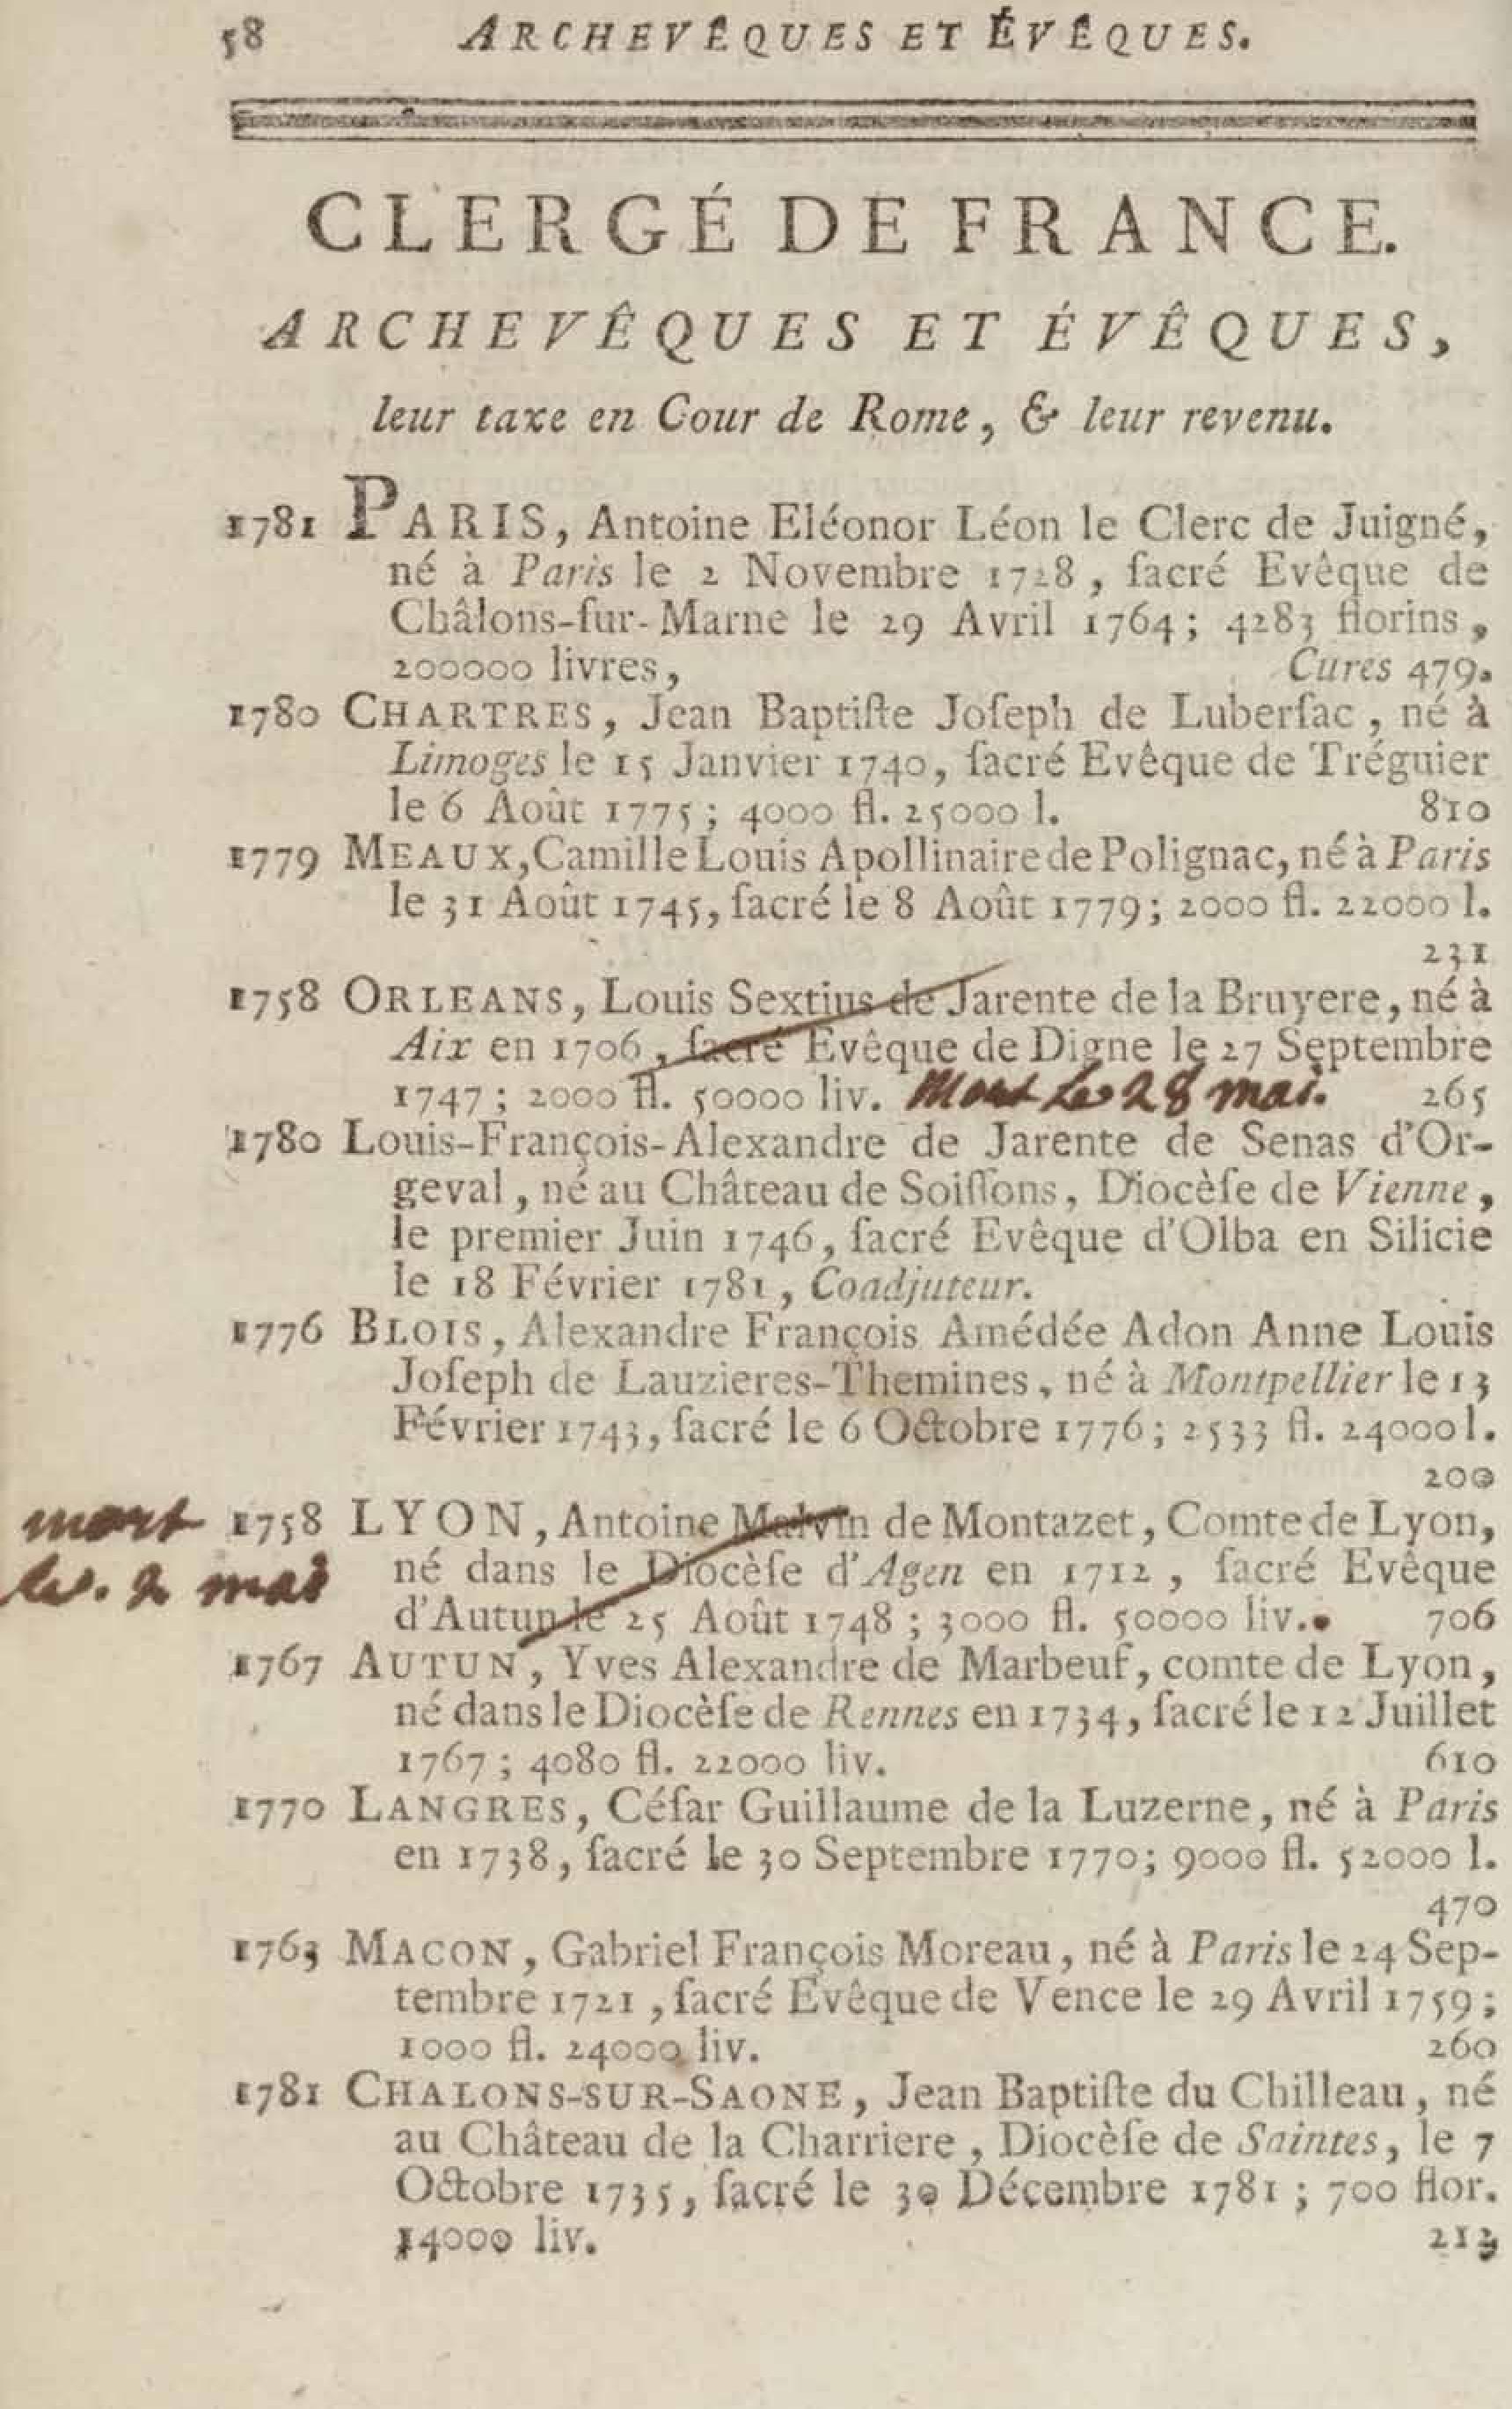 58 ARCHEVÊQUES ET ÉVÊQUES.
CLERGÉ DE FRANCE.
ARCHEVÊQUES ET ÉVÊQUES,
leur taxe en Cour de Rome, & leur revenu.
1781 PARIS, Antoine Eléonor Léon le Clerc de Juigné,
né à Paris le 2 Novembre 1728, ſacré Evêque de
Châlons-ſur-Marne le 29 Avril 1764; 4283 florins,
200000 livres, Cures 479.
1780 CHARTRES, Jean Baptiſte Joſeph de Luberſac, né à
Limoges le 15 Janvier 1740, ſacré Evêque de Tréguier
le 6 Août 1775; 4000 fl. 25000 l. 810
1779 MEAUX, Camille Louis Apollinaire de Polignac, né à Paris
le 31 Août 1745, ſacré le 8 Août 1779; 2000 fl. 22000 l.
231
1758 ORLEANS, Louis Sextius de Jarente de la Bruyere, né à
Aix en 1706, ſacré Evêque de Digne le 27 Septembre
1747; 2000 fl. 50000 liv. Mort Le 28 mai. 265
1780 Louis-François-Alexandre de Jarente de Senas d'Or-
geval, né au Château de Soiſſons, Diocèſe de Vienne,
le premier Juin 1746, ſacré Evêque d'Olba en Silicie
le 18 Février 1781, Coadjuteur.
1776 BLOIS, Alexandre François Amédée Adon Anne Louis
Joſeph de Lauzieres-Themines, né à Montpellier le 13
Février 1743, ſacré le 6 Octobre 1776; 2533 fl. 24000 l.
200
mort 1758 LYON, Antoine Malvin de Montazet, Comte de Lyon,
le. 2 mai né dans le Diocèſe d'Agen en 1712, ſacré Evêque
d'Autun le 25 Août 1748; 3000 fl. 50000 liv. 706
1767 AUTUN, Yves Alexandre de Marbeuf, comte de Lyon,
né dans le Diocèſe de Rennes en 1734, ſacré le 12 Juillet
1767; 4080 fl. 22000 liv. 610
1770 LANGRES, Céſar Guillaume de la Luzerne, né à Paris
en 1738, ſacré le 30 Septembre 1770; 9000 fl. 52000 l.
470
1763 MACON, Gabriel François Moreau, né à Paris le 24 Sep-
tembre 1721, ſacré Evêque de Vence le 29 Avril 1759;
1000 fl. 24000 liv. 260
1781 CHALONS-SUR-SAONE, Jean Baptiſte du Chilleau, né
au Château de la Charriere, Diocèſe de Saintes, le 7
Octobre 1735, ſacré le 30 Décembre 1781; 700 flor.
14000 liv. 213